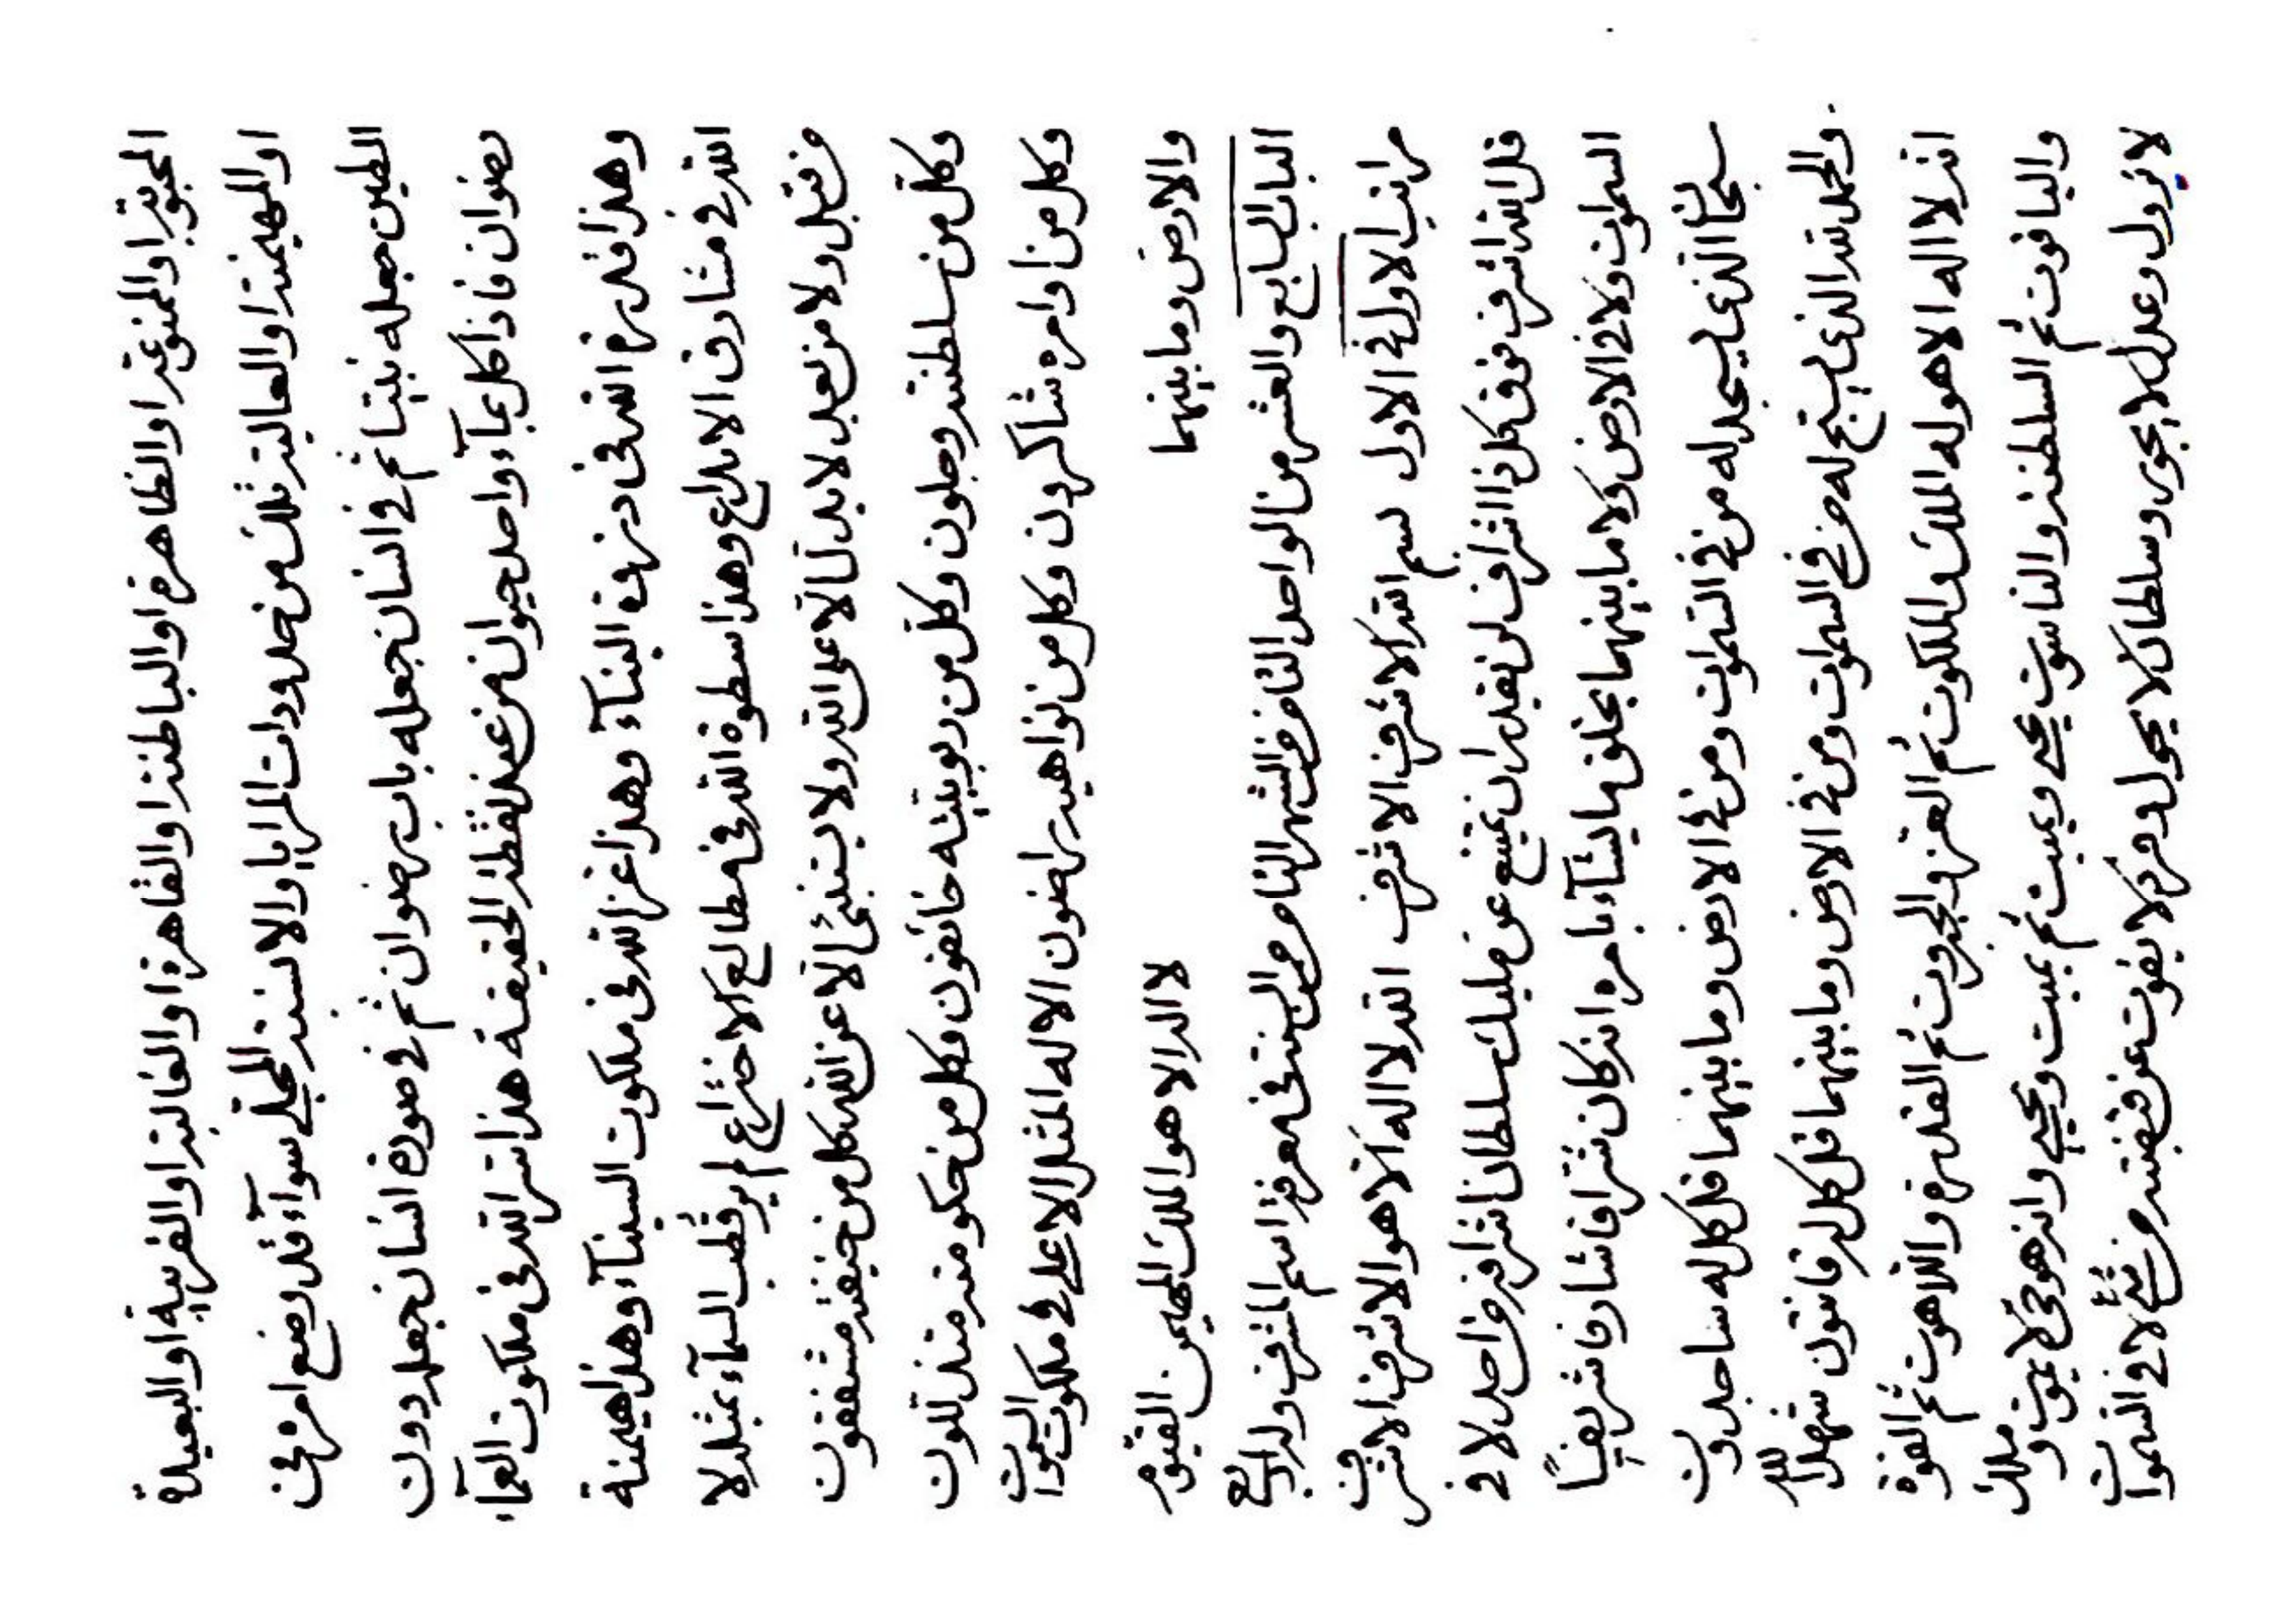 المحبوبة او الممنوعة او الظاهرة او الباطنة او القاهرة او الغالبة او القريبة او البعيدة
او المهيمنة او العالية تلك من حدودات المرايا والالسنة المحلى سوآء قد وضع امره في
الطين جعله نبتا ثم في انسان جعله باب رضوان ثم في صورة انسان جعله دون
رضوان فاذا كل بمآء واحد حيوان من عند نقطة الحقيقة هذا سر الله في ملكوت العمآء
وهذا قدرة الله في ذروة البنآء وهذا عز الله في ملكوت السينآء وهذا هيمنة
الله في مشارق الابداع وهذا سطوة الله في مطالع الاختراع لم ير قطب السمآء بمثله لا
من قبل ولا من بعد لا يدل الا على الله ولا يستنبئ الا عن الله كل من خيفته مشفقون
وكل من سلطنته وجلون وكل من ربوبيته خائفون وكل من حكومته متذللون
وكل من اوامره شاكرون وكل من نواهيه راضون الا له المثل الاعلى في ملكوت السموات
والارض وما بينهما لا اله الا هو الملك المهيمن القيوم
الباب السابع والعشر من الواحد الثامن من الشهر الثامن من السنة في معرفة اسم المشرف وله اربع
مراتب الاول في الاول بسم الله الاشرف الاشرف الله لا اله الا هو الاشرف الاشرف
قل الله اشرف فوق كل ذا اشراف لن يقدر ان يمتنع عن مليك سلطان اشرافه من احد لا في
السموات ولا في الارض ولا ما بينهما يخلق ما يشآء بامره انه كان شرافا شارفا شريفا
سبحان الذي يسجد له من في السموات ومن في الارض وما بينهما قل كل له ساجدون
والحمد لله الذي يسبح له من في السموات ومن في الارض وما بينهما قل كل له قانتون شهد الله
انه لا اله الا هو له الملك والملكوت ثم العز والجبروت ثم القدرة واللاهوت ثم القوة
والياقوت ثم السلطنة والناسوت يحيي ويميت ثم يميت ويحيي وانه هو حي لا يموت وملك
لا يزول وعدل لا يجور وسلطان لا يحول وفرد لا يفوت عن قبضته من شيء لا في السموات